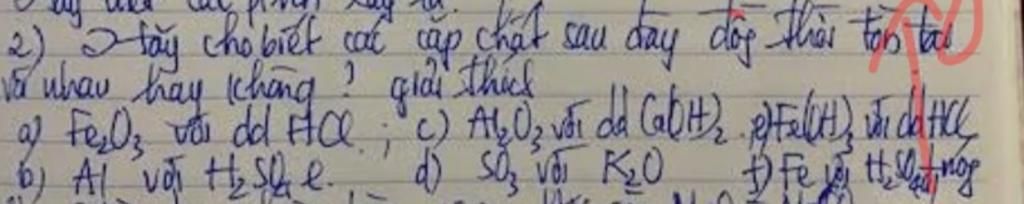 2) Hãy cho biết các cặp chất sau đây đồng thời tồn tại
với nhau hay không? giải thích
a) Fe2O3 với dd HCl ; c) Al2O3 với dd Ca(OH)2 e) Fe(OH)3 với dd HCl
b) Al với H2SO4 l. d) SO3 với K2O f) Fe với H2SO4 nóg